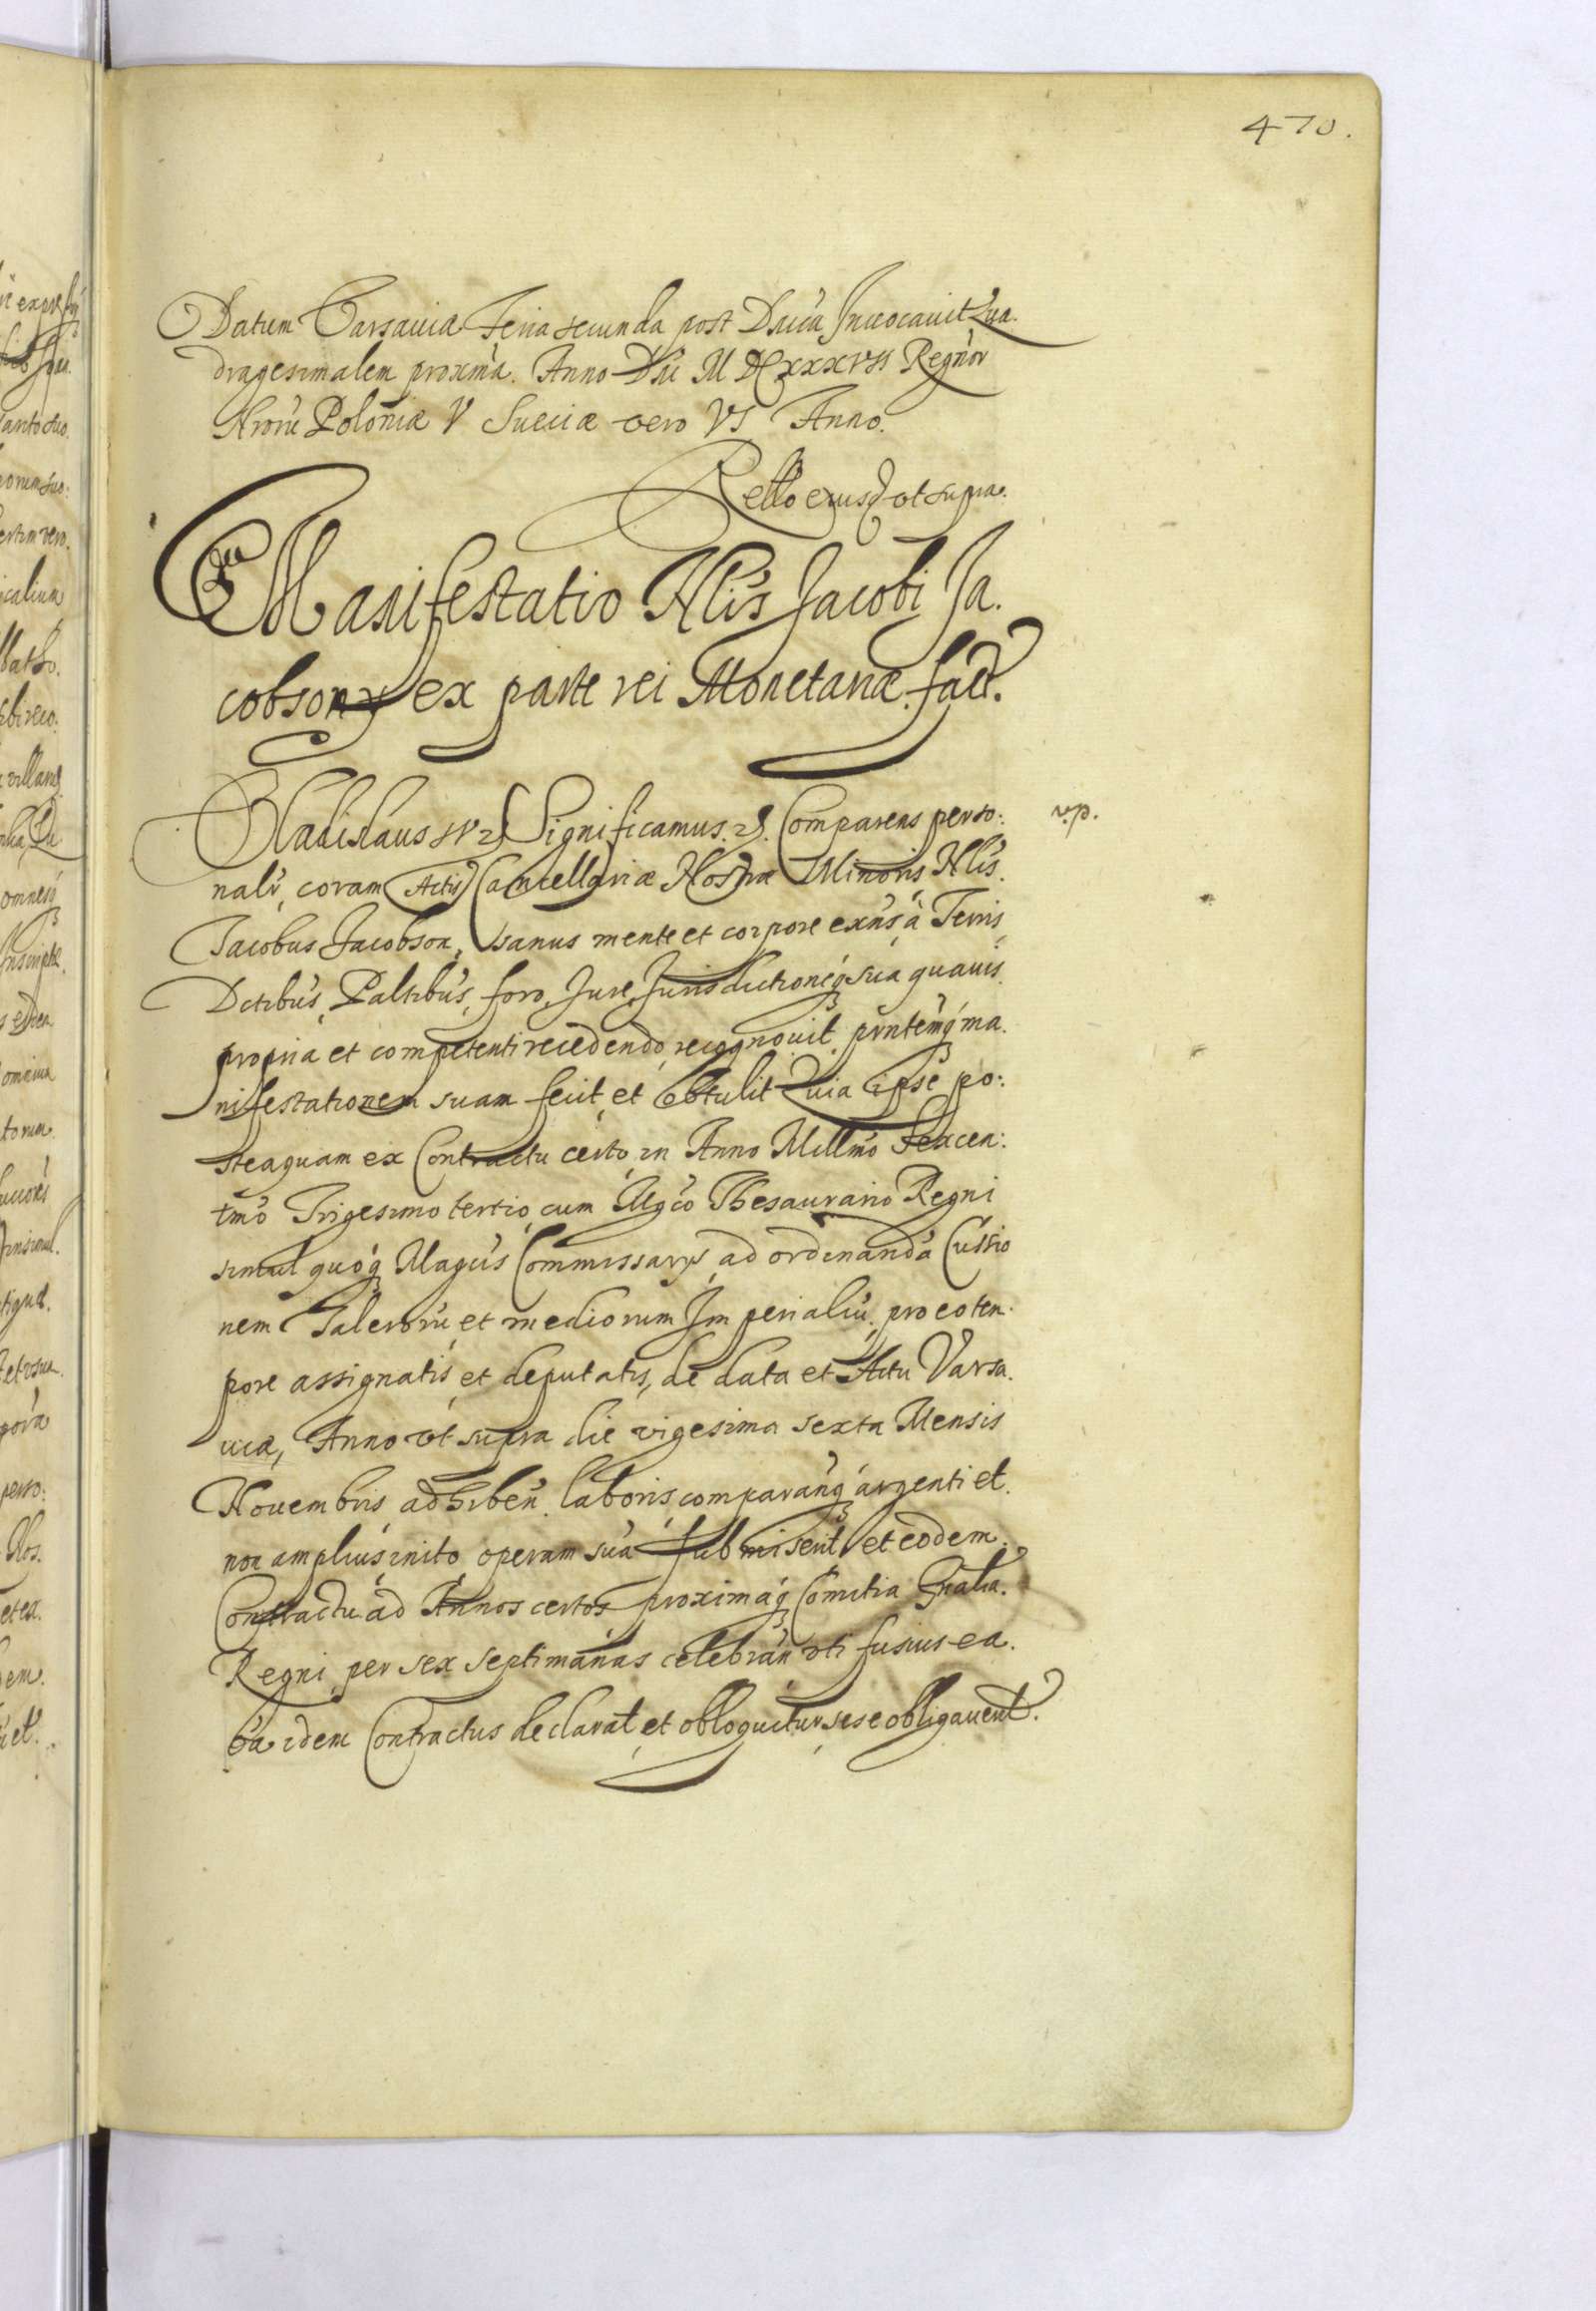 470.
Datum Varsaviæ Feria secunda post Dnicā Invocavit Qua.
dragesimalem proximā. Anno Dni M DCXXXVII Regnor
Nrorū Poloniæ V Sueciæ vero VI Anno.
Rello eiusd ut supra.
Manifestatio Nlis Jacobi Ja.
cobsony ex parte rei Monetariæ fact.
Vladislaus IV Significamus. Comparens perso:
nalr, coram Actis Cancellariæ Nostræ Minoris Nlis.
v.p.
Jacobus Jacobson, sanus mente et corpore exns, à Terris
Dctibus, Paltibus, foro, Jure, Jurisdictioneq sua quavis.
propria et competenti recedendo, recognovit, prntemq ma.
nifestationem suam fecit, et obtulit Quia ipse po:
steaquam ex Contractu certo, in Anno Millmo Sexcen:
tmo Trigesimo tertio, cum Mgco Thesaurario Regni
simul quoq Magcis Commissarys, ad ordinandā Cussio
nem Talerorū et mediorum Imperialiū, pro eo tem.
pore assignatis, et deputatis, de data et Actu Varsa.
viæ, Anno ut supra die vigesima sexta Mensis
Novembris, adhiben laboris, comparanq argenti et.
non amplius, inito, operam suā submiserit, et eodem.
Contractu ad Annos certos, proximaq Comitia Gnalia.
Regni, per sex septimanas celebran uti fusius ea.
ōa idem Contractus declarat, et obloquitur, sese obligaverit.